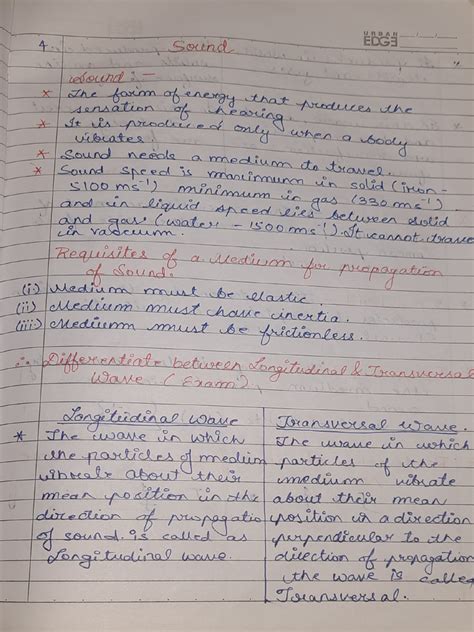 URBAN
EDGE
4. Sound
Sound : -
* The form of energy that produces the
sensation of hearing.
* It is produced only when a body
vibrates.
* Sound needs a medium to travel.
* Sound speed is maximum in solid (iron-
5100 ms-1) minimum in gas (330 ms-1)
and in liquid speed lies between solid
and gas (water - 1500 ms-1). It cannot trave
in vaccum.
Requisites of a Medium for propogation
of Sound:
(i) Medium must be elastic.
(ii) Medium must have inertia.
(iii) Medium must be frictionless.
∴ Differentiate between Longitudinal & Transversal
Wave (Exam)
Longitudinal Wave
* The wave in which
the particles of medium
vibrate about their
mean position in the
direction of propogatio
of sound is called as
Longitudinal wave.
Transversal Wave.
The wave in which
particles of the
medium vibrate
about their mean
position in a direction
perpendicular to the
direction of propagation
the wave is called
Transversal.